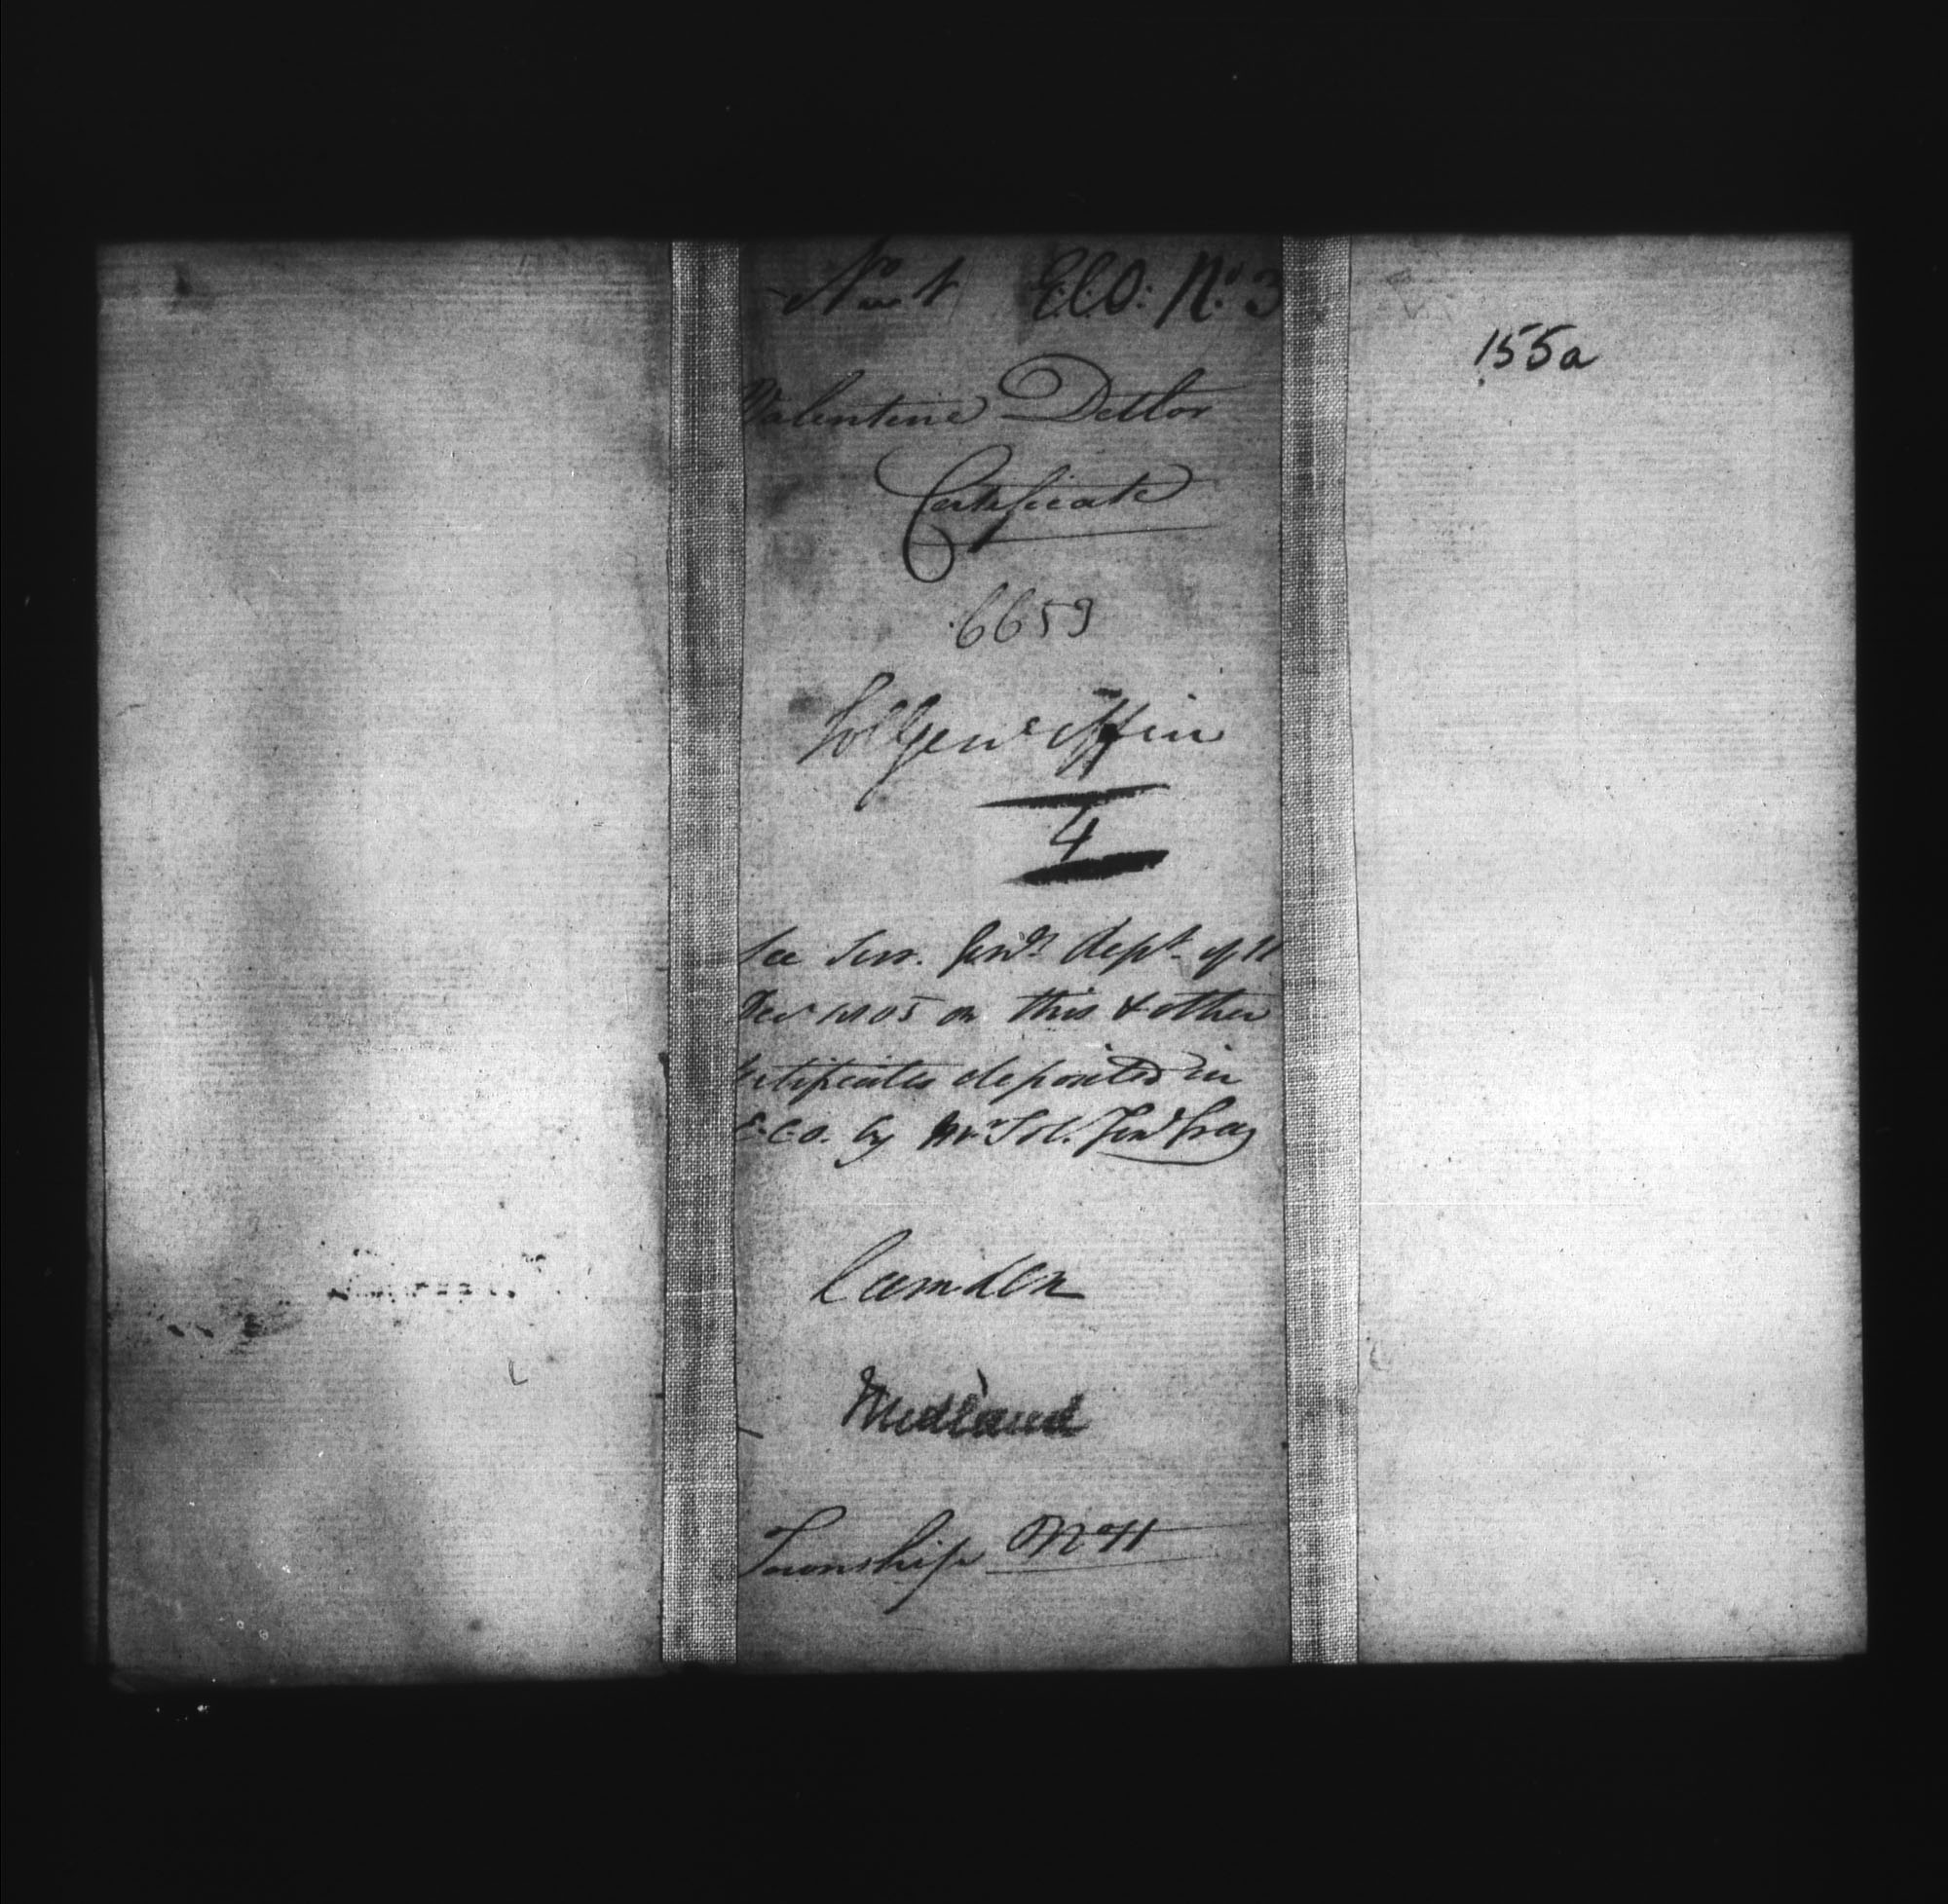 No. 1 E.C.O: No. 3
Valentine Detlor
Certificate
6659
Sol Genl's Offin
4
See Surv. Genls Rept. of 11
Decr 1805 on this & other
Certificates deposited in
E.C.O. by Mr Sol. Genl Gray
Camden
Midland
Township No 11
155a